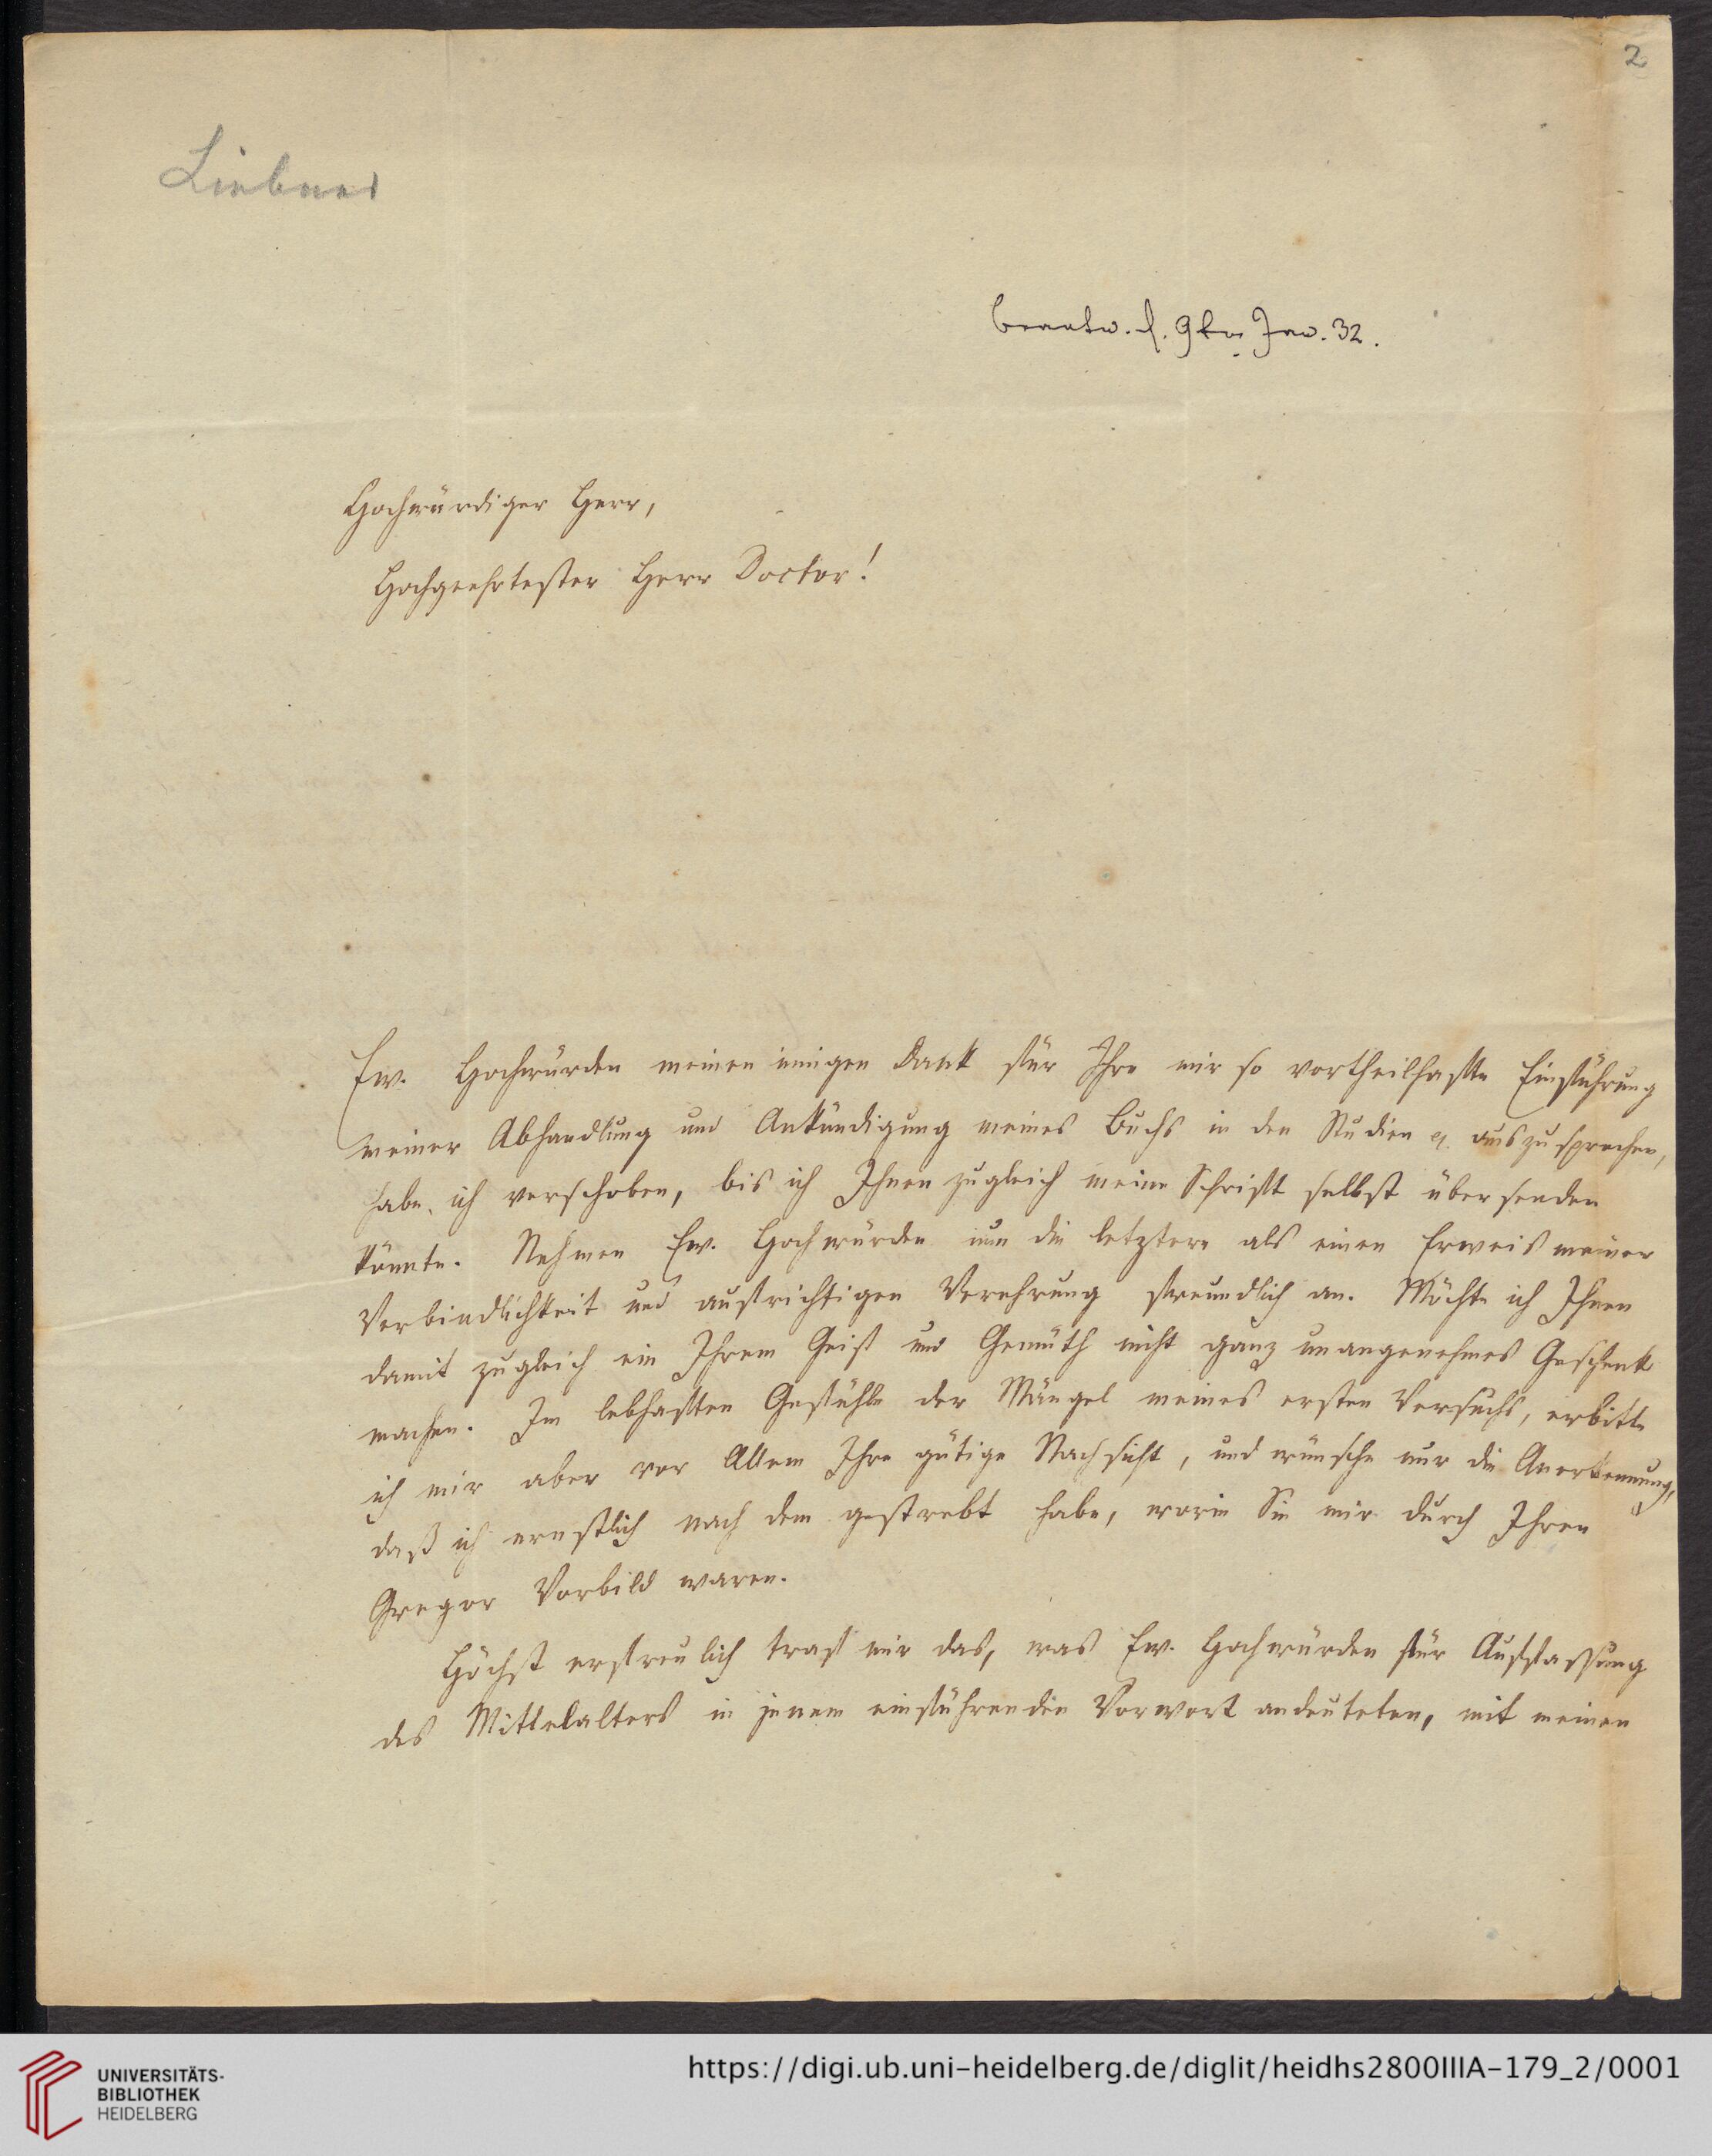 2
Liebner
beantw. d. 9ten Jan. 32.
Hochwürdiger Herr,
Hochgeehrtester Herr Doctor!
Ew. Hochwürden meinen innigen Dank für Ihre mir so vortheilhafte Einführung
meiner Abhandlung und Ankündigung meines Buchs in den Studien auszusprechen,
habe ich verschoben, bis ich Ihnen zugleich meine Schrift selbst übersenden
könnte. Nehmen Ew. Hochwürden nun die letztere als einen Erweis meiner
Verbindlichkeit und aufrichtigen Verehrung freundlich an. Möchte ich Ihnen
damit zugleich ein Ihrem Geist und Gemüth nicht ganz unangenehmes Geschenk
machen. Im lebhaften Gefühle der Mängel meines ersten Versuchs, erbitte
ich mir aber vor Allem Ihre gütige Nachsicht, und wünsche nur die Anerkennung,
daß ich ernstlich nach dem gestrebt habe, worin Sie mir durch Ihren
Gregor Vorbild waren.
Höchst erfreulich traf mir das, was Ew. Hochwürden für Auffassung
des Mittelalters in jenem einführenden Vorwort andeuteten, mit meinen
UNIVERSITÄTS-
BIBLIOTHEK
HEIDELBERG
https://digi.ub.uni-heidelberg.de/diglit/heidhs2800IIIA-179_2/0001